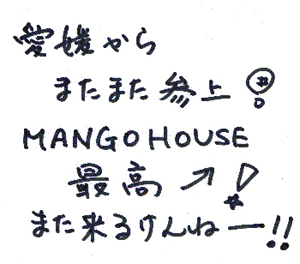 愛媛から
またまた参上!
MANGO HOUSE
最高↗!
また来るけんねー!!